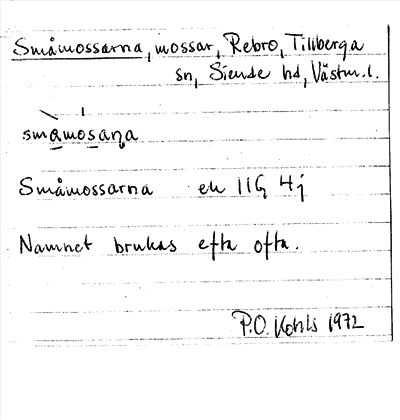 Småmossarna, mossar, Rebro, Tillberga
sn, Siende hd, Västm.l.
smamosana
Småmossarna ek 11G 4j
Namnet brukas ofta ofta.
P.O. Kohls 1972